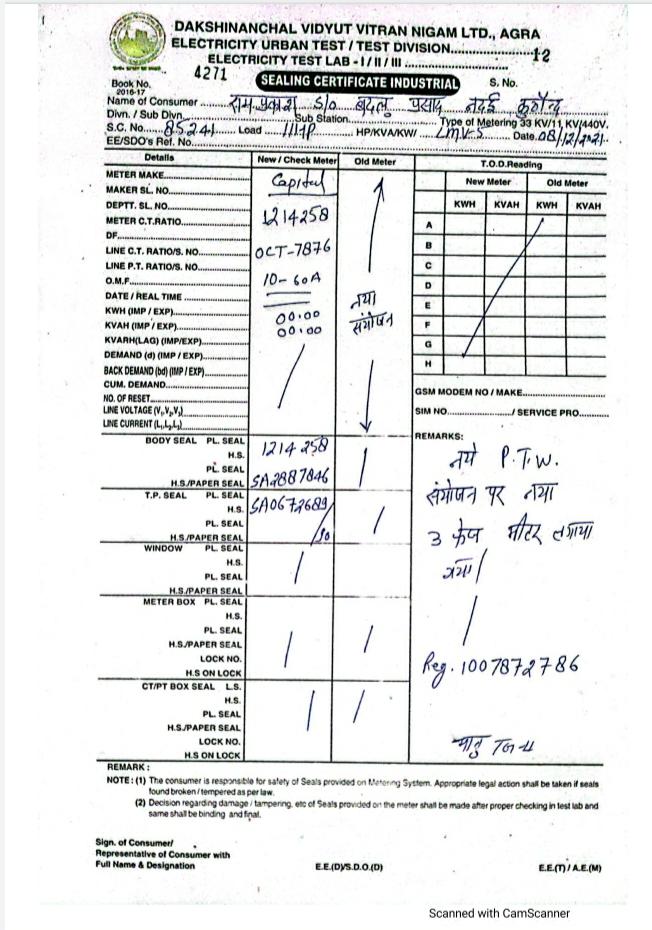 DAKSHINANCHAL VIDYUT VITRAN NIGAM LTD., AGRA
ELECTRICITY URBAN TEST / TEST DIVISION.................... 12
ELECTRICITY TEST LAB - I / II / III ....................
4271
SEALING CERTIFICATE INDUSTRIAL
S. No.
Book No.
2016-17
Name of Consumer ...... राम प्रकाश S/o बदलु प्रसाद
Divn. / Sub Divn. Sub Station. Type of Metering 33 KV/11, KV/440V.
S.C. No. 85241 Load 11HP HP/KVA/KW/ LMV-5 Date. 08/12/2021.
EE/SDO's Ref. No.
Details New / Check Meter Old Meter T.O.D.Reading
New Meter Old Meter
KWH KVAH KWH KVAH
A
B
C
D
E
F
G
H
METER MAKE Capital
MAKER SL. NO.
DEPTT. SL. NO. 1214258
METER C.T.RATIO
DF
LINE C.T. RATIO/S. NO. OCT-7876
LINE P.T. RATIO/S. NO.
O.M.F. 10-60A
DATE / REAL TIME नया
KWH (IMP / EXP) 00.00 संयोजन
KVAH (IMP / EXP) 00.00
KVARH(LAG) (IMP/EXP)
DEMAND (d) (IMP / EXP)
BACK DEMAND (bd) (IMP / EXP)
CUM. DEMAND
NO. OF RESET
LINE VOLTAGE (V₁,V₂,V₃)
LINE CURRENT (L₁,L₂,L₃)
GSM MODEM NO / MAKE
SIM NO. / SERVICE PRO.
BODY SEAL PL. SEAL 1214258
H.S.
PL. SEAL
H.S./PAPER SEAL SA2887846
T.P. SEAL PL. SEAL
H.S. SA0672689/90
PL. SEAL
H.S./PAPER SEAL
WINDOW PL. SEAL
H.S.
PL. SEAL
H.S./PAPER SEAL
METER BOX PL. SEAL
H.S.
PL. SEAL
H.S./PAPER SEAL
LOCK NO.
H.S ON LOCK
CT/PT BOX SEAL L.S.
H.S.
PL. SEAL
H.S./PAPER SEAL
LOCK NO.
H.S ON LOCK
REMARKS:
नये P.T.W.
संयोजन पर नया
3 फेज मीटर लगाया
गया
Reg. 1007872786
REMARK :
NOTE : (1) The consumer is responsible for safety of Seals provided on Metering System. Appropriate legal action shall be taken if seals
found broken / tempered as per law.
(2) Decision regarding damage / tampering, etc of Seals provided on the meter shall be made after proper checking in test lab and
same shall be binding and final.
Sign. of Consumer/
Representative of Consumer with
Full Name & Designation
E.E.(D)/S.D.O.(D)
E.E.(T) / A.E.(M)
Scanned with CamScanner